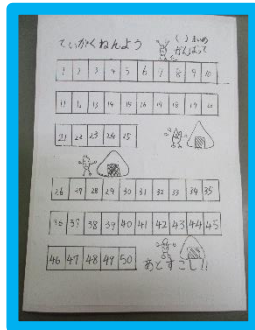 ていがくねんよう
くろまるめ
がんばって
1 2 3 4 5 6 7 8 9 10
11 12 13 14 15 16 17 18 19 20
21 22 23 24 25
26 27 28 29 30 31 32 33 34 35
36 37 38 39 40 41 42 43 44 45
46 47 48 49 50
あとすこし!!